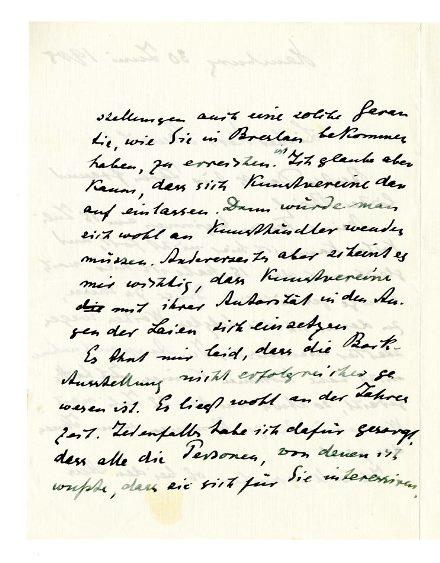 stellungen auch eine solche Garan
tie, wie Sie in Breslau bekommen
haben, zu erreichen ist. Ich glaube aber
kaum, dass sich Kunstvereine dar
auf einlassen. Dann würde man
sich wohl an Kunsthändler wenden
müssen. Andererseits aber scheint es
mir wichtig, dass Kunstvereine
die mit ihrer Autorität in den Au-
gen der Laien sich einsetzen
Es thut mir leid, dass die
Ausstellung nicht erfolgreicher ge
wesen ist. Es liegt wohl an der Jahres
zeit. Jedenfalls habe ich dafür gesorgt,
dass alle die Personen, von denen ich
wußte, dass sie sich für Sie interessiren,